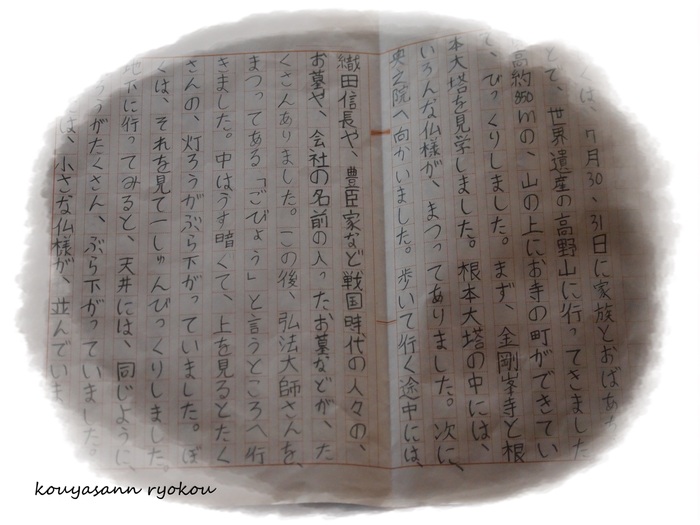 くは、7月30、31日に家族とおばあち
とで、世界遺産の高野山に行ってきました
高約850mの、山の上にお寺の町ができてい
て、びっくりしました。まず、金剛峯寺と根
本大塔を見学しました。根本大塔の中には、
いろんな仏様が、まつってありました。次に、
央之院へ向かいました。歩いて行く途中には、
織田信長や、豊臣家など戦国時代の人々の、
お墓や、会社の名前の入ったお墓などが、た
くさんありました。この後、弘法大師さんを、
まつってある「ごびょう」と言うところへ行
きました。中はうす暗くて、上を見るとたく
さんの、灯ろうがぶら下がっていました。ぼ
くは、それを見て一しゅんびっくりしました。
地下に行ってみると、天井には、同じように、
ろうがたくさん、ぶら下がっていました。
は、小さな仏様が、並んでいま
kouyasann ryokou